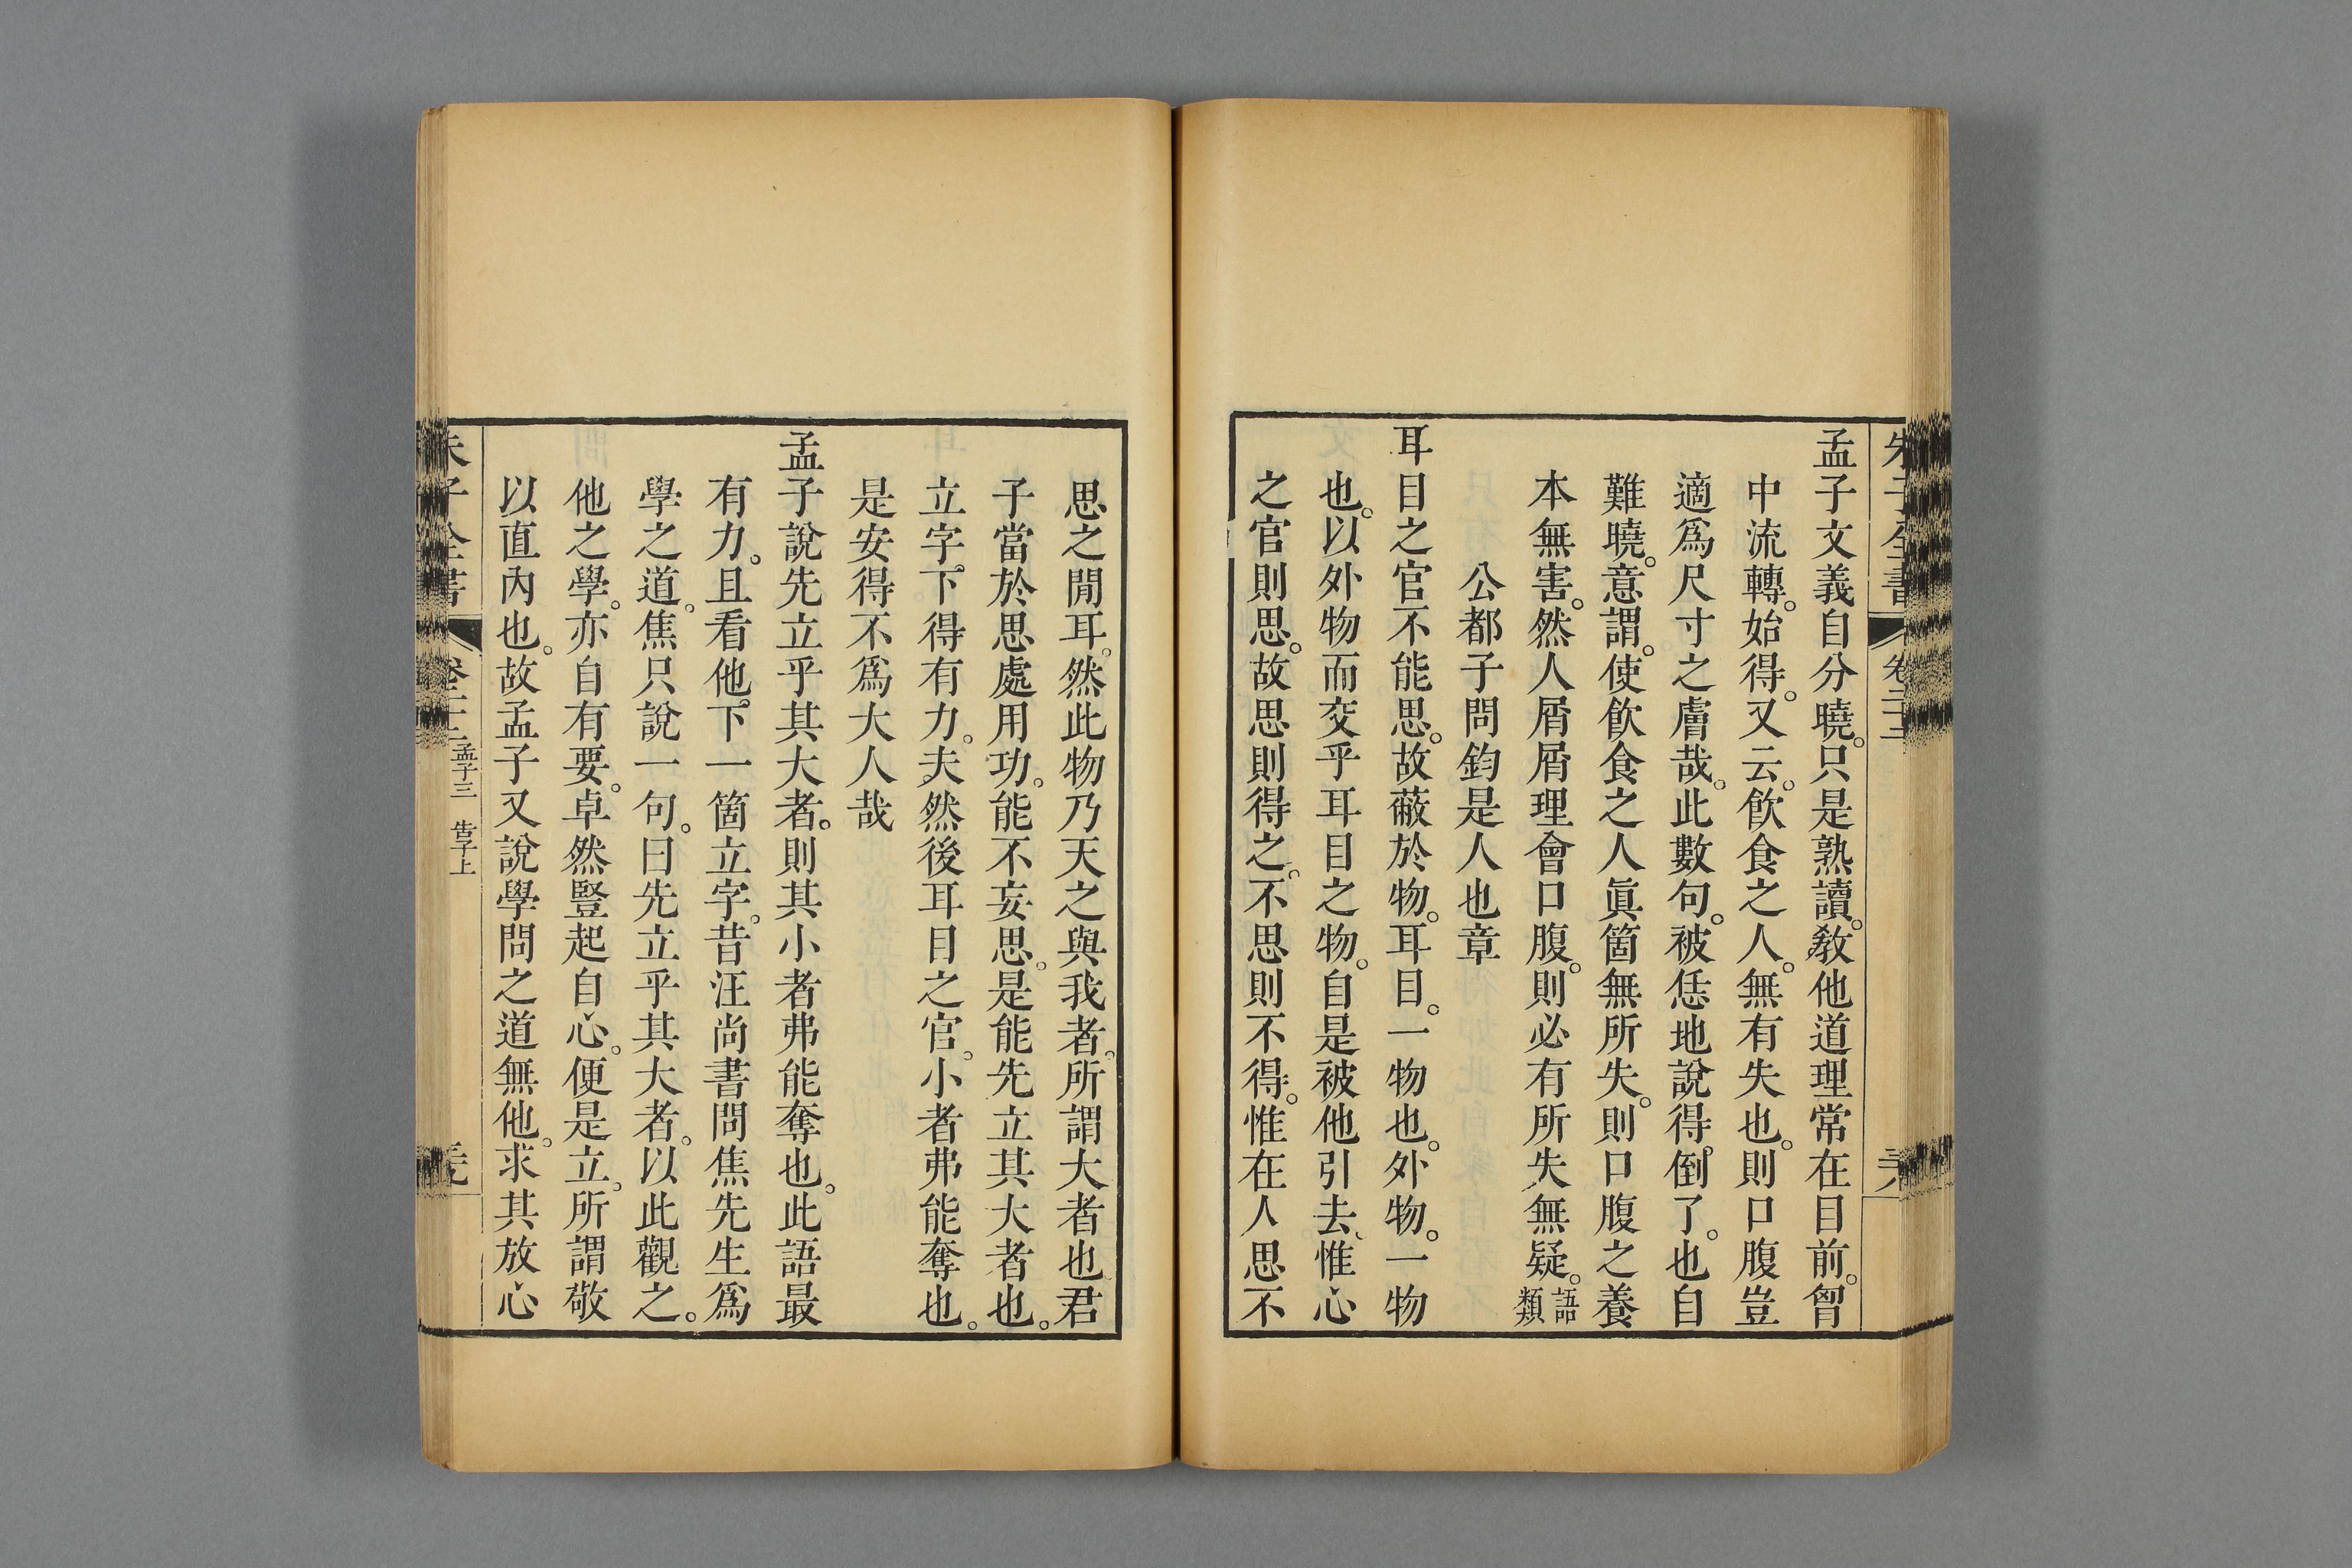 朱子全書 卷二十二
孟子文義自分曉。只是熟讀。教他道理常在目前。胷
中流轉。始得。又云。飲食之人。無有失也。則口腹豈
適爲尺寸之膚哉。此數句。被恁地說得。倒了。也自
難曉。意謂。使飲食之人眞箇無所失。則口腹之養
本無害。然人屑屑理會口腹。則必有所失無疑。語類
公都子問鈞是人也章
耳目之官不能思。故蔽於物。耳目。一物也。外物。一物
也。以外物而交乎耳目之物。自是被他引去、惟心
之官則思。故思則得之。不思則不得。惟在人思不
思之閒耳。然此物乃天之與我者。所謂大者也君
子當於思處用功。能不妄思。是能先立其大者也。
立字。下得有力。夫然後耳目之官。小者弗能奪也。
是安得不爲大人哉
孟子說先立乎其大者。則其小者弗能奪也。此語最
有力。且看他。下一箇立字。昔汪尚書問焦先生爲
學之道。焦只說一句。曰先立乎其大者。以此觀之。
他之學。亦自有要。卓然豎起自心。便是立。所謂敬
以直內也。故孟子又說學問之道無他。求其放心
朱子全書 孟子三 告子上